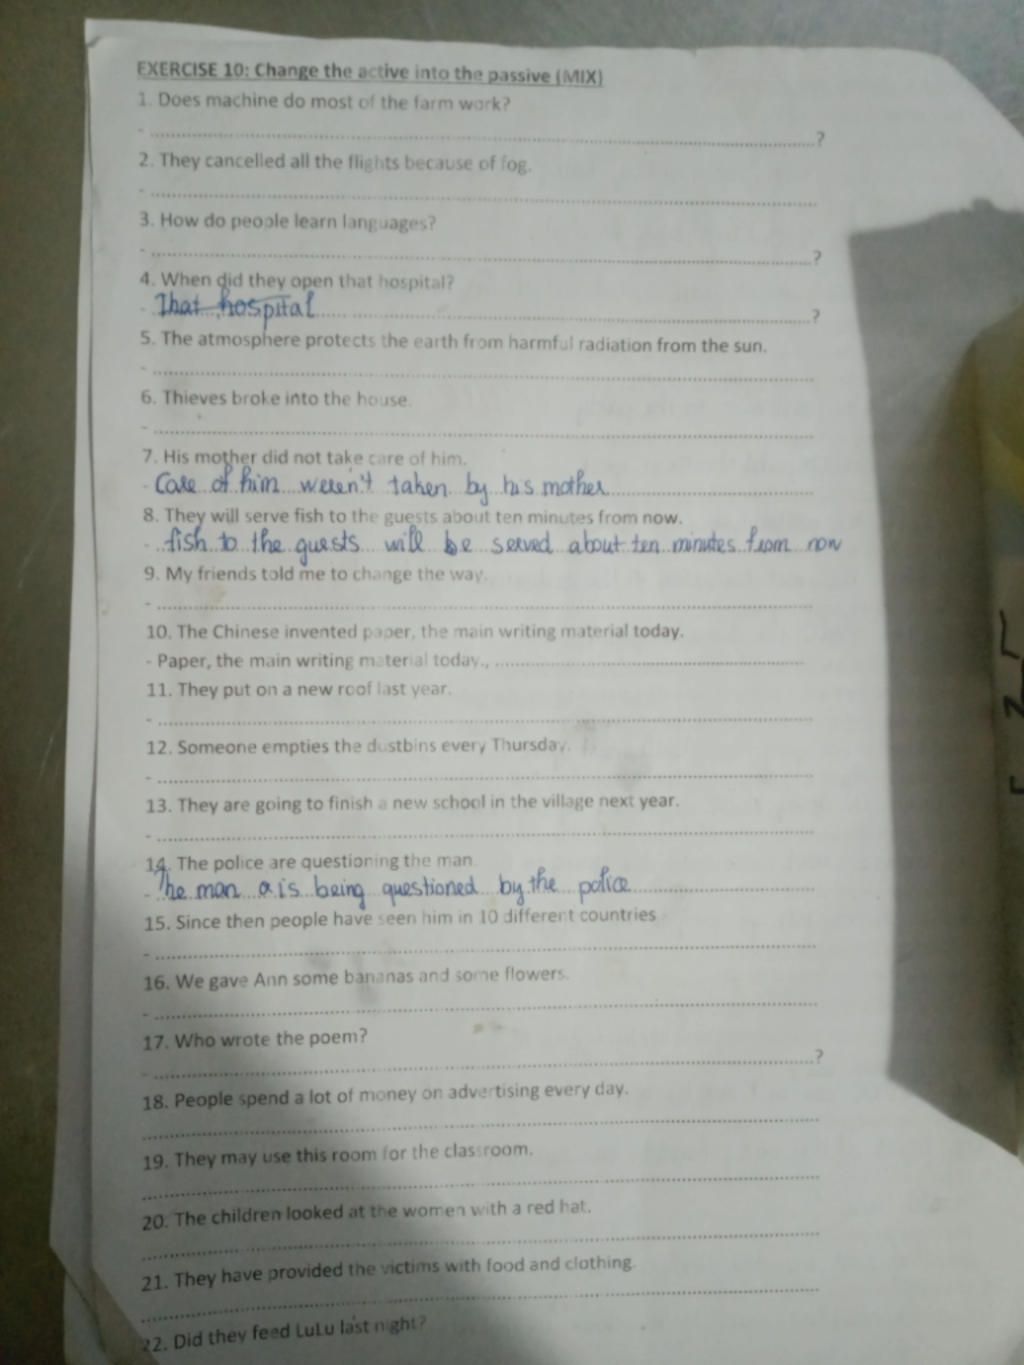 EXERCISE 10: Change the active into the passive (MIX)
1. Does machine do most of the farm work?
- ...?
2. They cancelled all the flights because of fog.
- ...
3. How do people learn languages?
- ...?
4. When did they open that hospital?
- That hospital ...?
5. The atmosphere protects the earth from harmful radiation from the sun.
- ...
6. Thieves broke into the house.
- ...
7. His mother did not take care of him.
- Care of him weren't taken by his mother
8. They will serve fish to the guests about ten minutes from now.
- fish to the guests will be served about ten minutes from now
9. My friends told me to change the way.
- ...
10. The Chinese invented paper, the main writing material today.
- Paper, the main writing material today., ...
11. They put on a new roof last year.
- ...
12. Someone empties the dustbins every Thursday.
- ...
13. They are going to finish a new school in the village next year.
- ...
14. The police are questioning the man
- The man is being questioned by the police
15. Since then people have seen him in 10 different countries
- ...
16. We gave Ann some bananas and some flowers.
- ...
17. Who wrote the poem?
- ...?
18. People spend a lot of money on advertising every day.
...
19. They may use this room for the classroom.
...
20. The children looked at the women with a red hat.
...
21. They have provided the victims with food and clothing.
...
22. Did they feed LuLu last night?